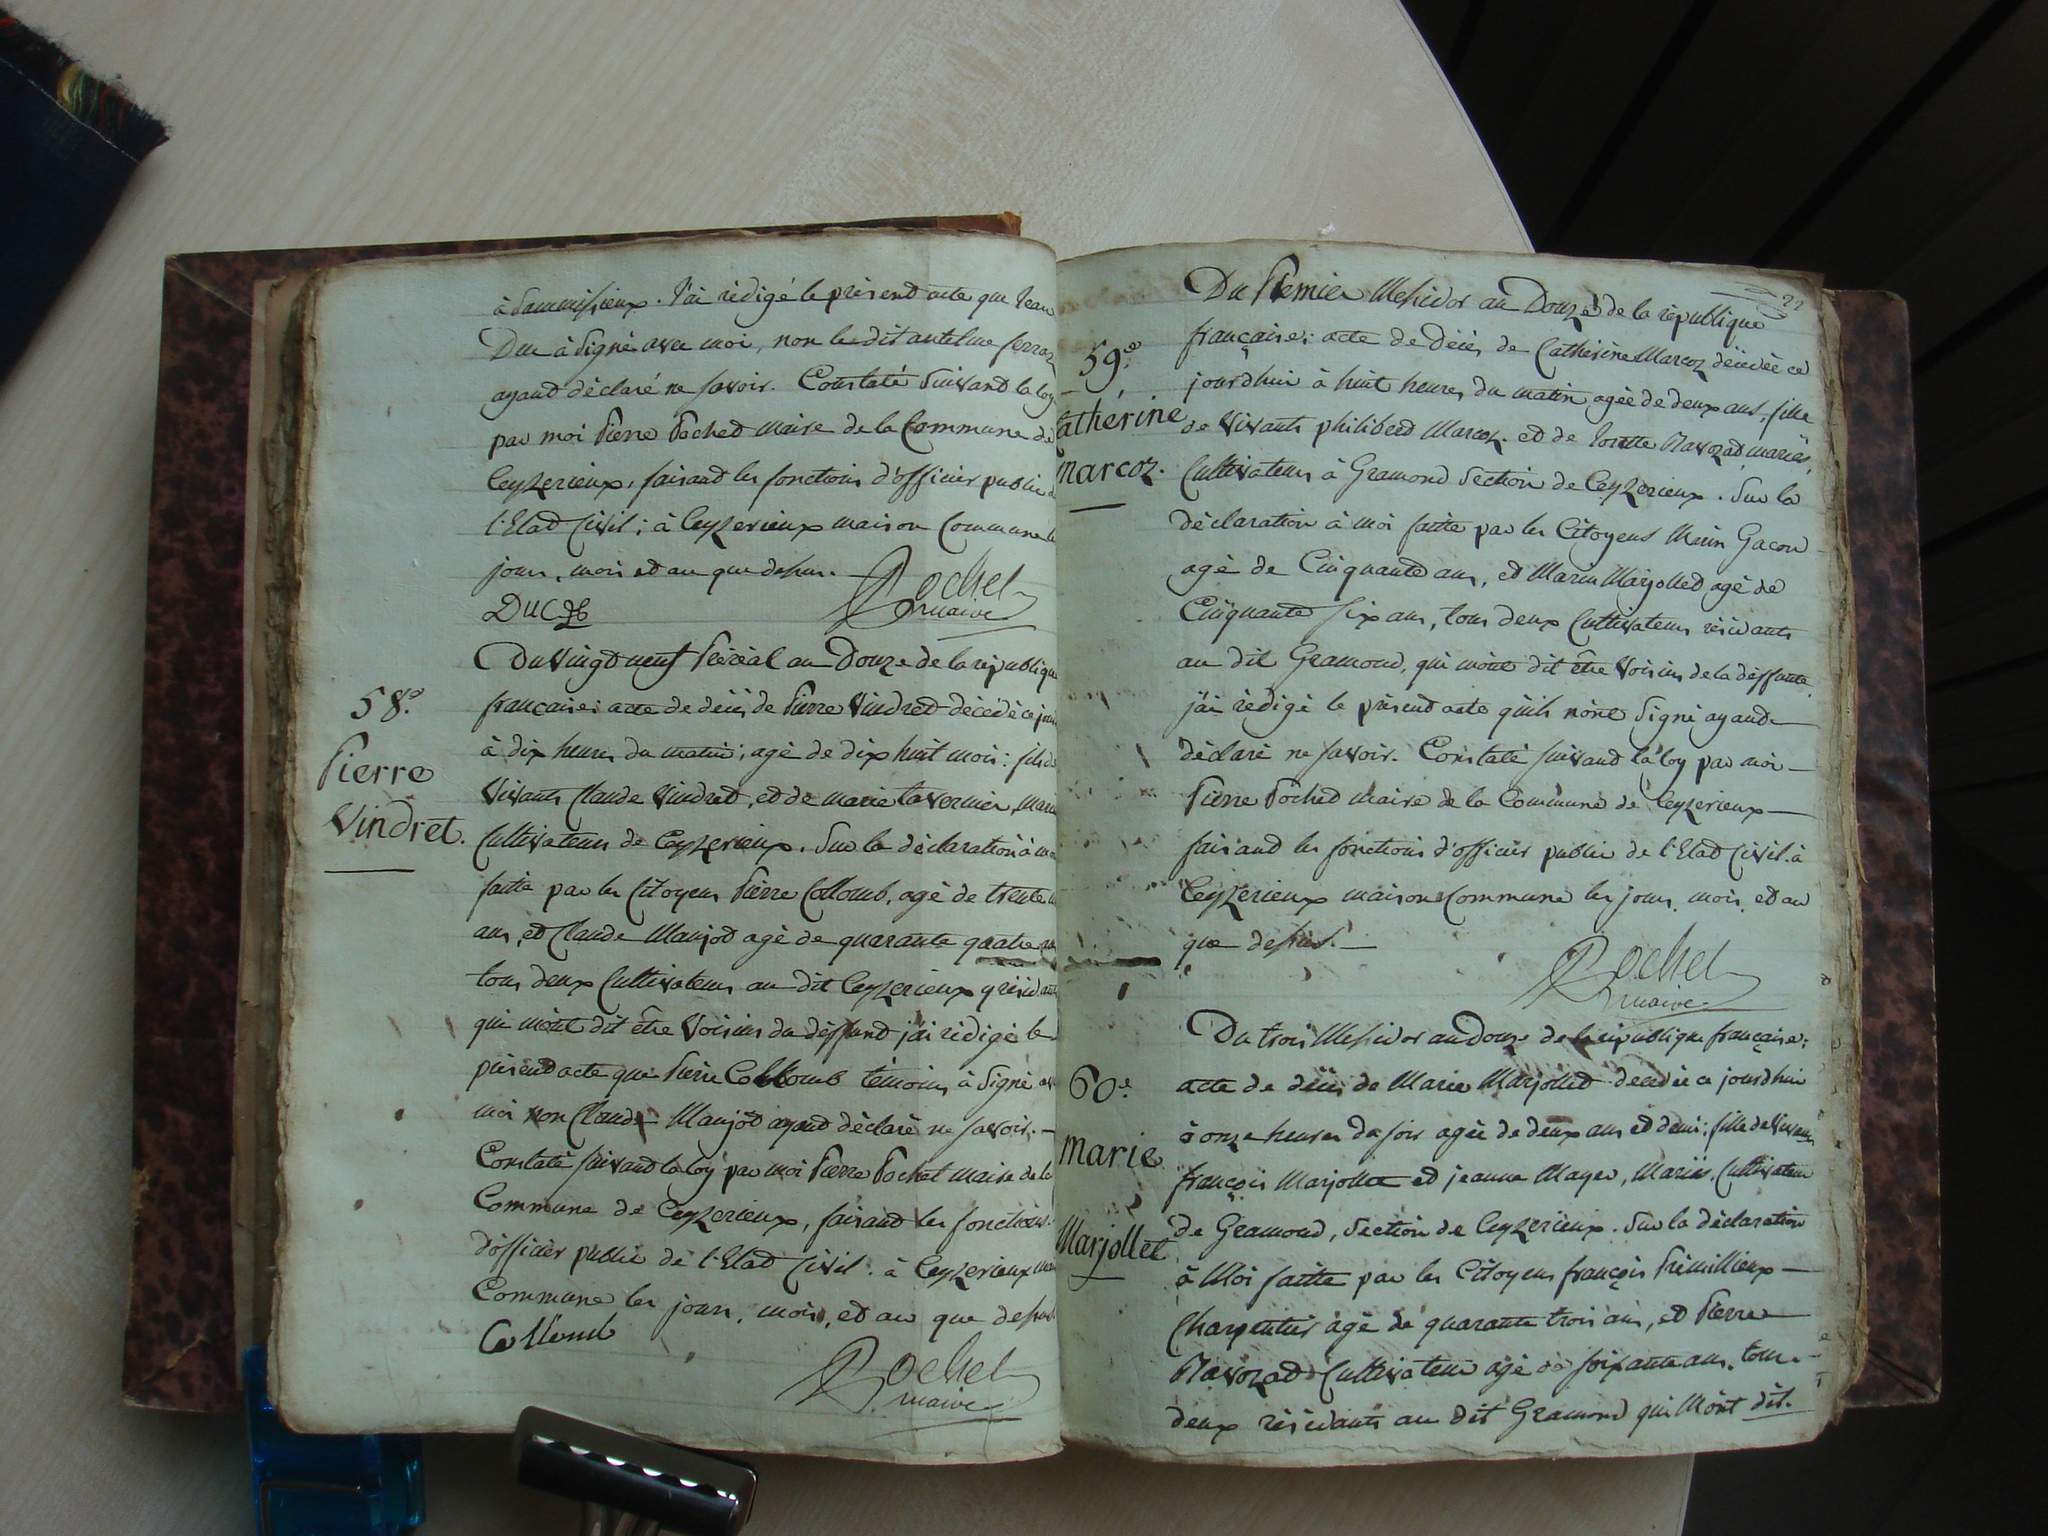 à Sammissieux. J'ai rèdigé le prèsend acte que Jean
Duc à Signé avec moi, non le dit antelme ferraz
ayand dèclaré ne savoir. Constaté Suivand la loy
par moi Pierre Pochet maire de la Commune de
Ceyzerieux, faisand les fonctions d'officier public de
l'Etad Civil; à Ceyzerieux maison Commune les
jour, mois et an que dessus.
DUC
Pochet
maire
58.e
Pierre
Vindret.
Du Vingt neuf Prèrèal an Douze de la rèpublique
française: acte de dècès de Pierre Vindred dècèdè ce jour
à dix heures du matin; agè de dix huit mois: fils de
Vivants Claude Vindred, et de marie tavernier, mariés
Cultivateurs de Ceyzerieux. Sur la dèclaration à moi
faite par les Citoyens Pierre Collomb, agè de trente
ans, et Claude Manjod agè de quarante quatre
tous deux Cultivateurs au dit Ceyzerieux y rèsidants
qui m'ont dit être Voisins du deffund j'ai rèdigè le
prèsend acte que Pierre Collomb tèmoins à Signè avec
moi non Claude Manjod ayand dèclarè ne savoir.
Constatè suivand la loy par moi Pierre Pochet maire de la
Commune de Ceyzerieux, faisand les fonctions
d'officier public de l'Etad Civil. à Ceyzerieux maison
Commune les jour, mois, et an que dessus
Collomb
Pochet
maire
22
59.e
Catherine
marcoz.
Du Premier Messidor an Douze de la rèpublique
française: acte de dècès de Cathèrine Marcoz dècèdèe ce
jourdhui à huit heures du matin agèe de deux ans, fille
de Vivants philiberd Marcoz et de Josette Ravozad mariès,
Cultivateurs à Gramond Section de Ceyzerieux. Sur la
dèclaration à moi faite par les Citoyens Marin Gacon
agè de Cinquante ans, et Marin Marjolled agè de
Cinquante six ans, tous deux Cultivateurs rèsidants
au dit Gramond, qui m'ont dit être Voisins de la deffunte.
j'ai rèdigè le prèsend acte qu'ils n'ont Signè ayand
dèclarè ne savoir. Constatè suivand la loy par moi
Pierre Pochet maire de la Commune de Ceyzerieux
faisand les fonctions d'officier public de l'Etad Civil. à
Ceyzerieux maison Commune les jour, mois, et an
que dessus.
Pochet
maire
60.e
Marie
Marjollet
Du trois Messidor an Douze de la rèpublique française:
acte de dècès de Marie Marjolled dècèdèe ce jourdhui
à onze heures du soir agèe de deux ans et demi: fille de Vivants
françois Marjollet et jeanne Mayer, Mariès, Cultivateurs
de Gramond, Section de Ceyzerieux. Sur la dèclaration
à Moi faite par les Citoyens françois Prèmillieux
Charpentier agè de quarante trois ans, et Pierre
Ravozad Cultivateur agè de soixante ans. tous
deux rèsidants au dit Gramond qui M'ont dit.